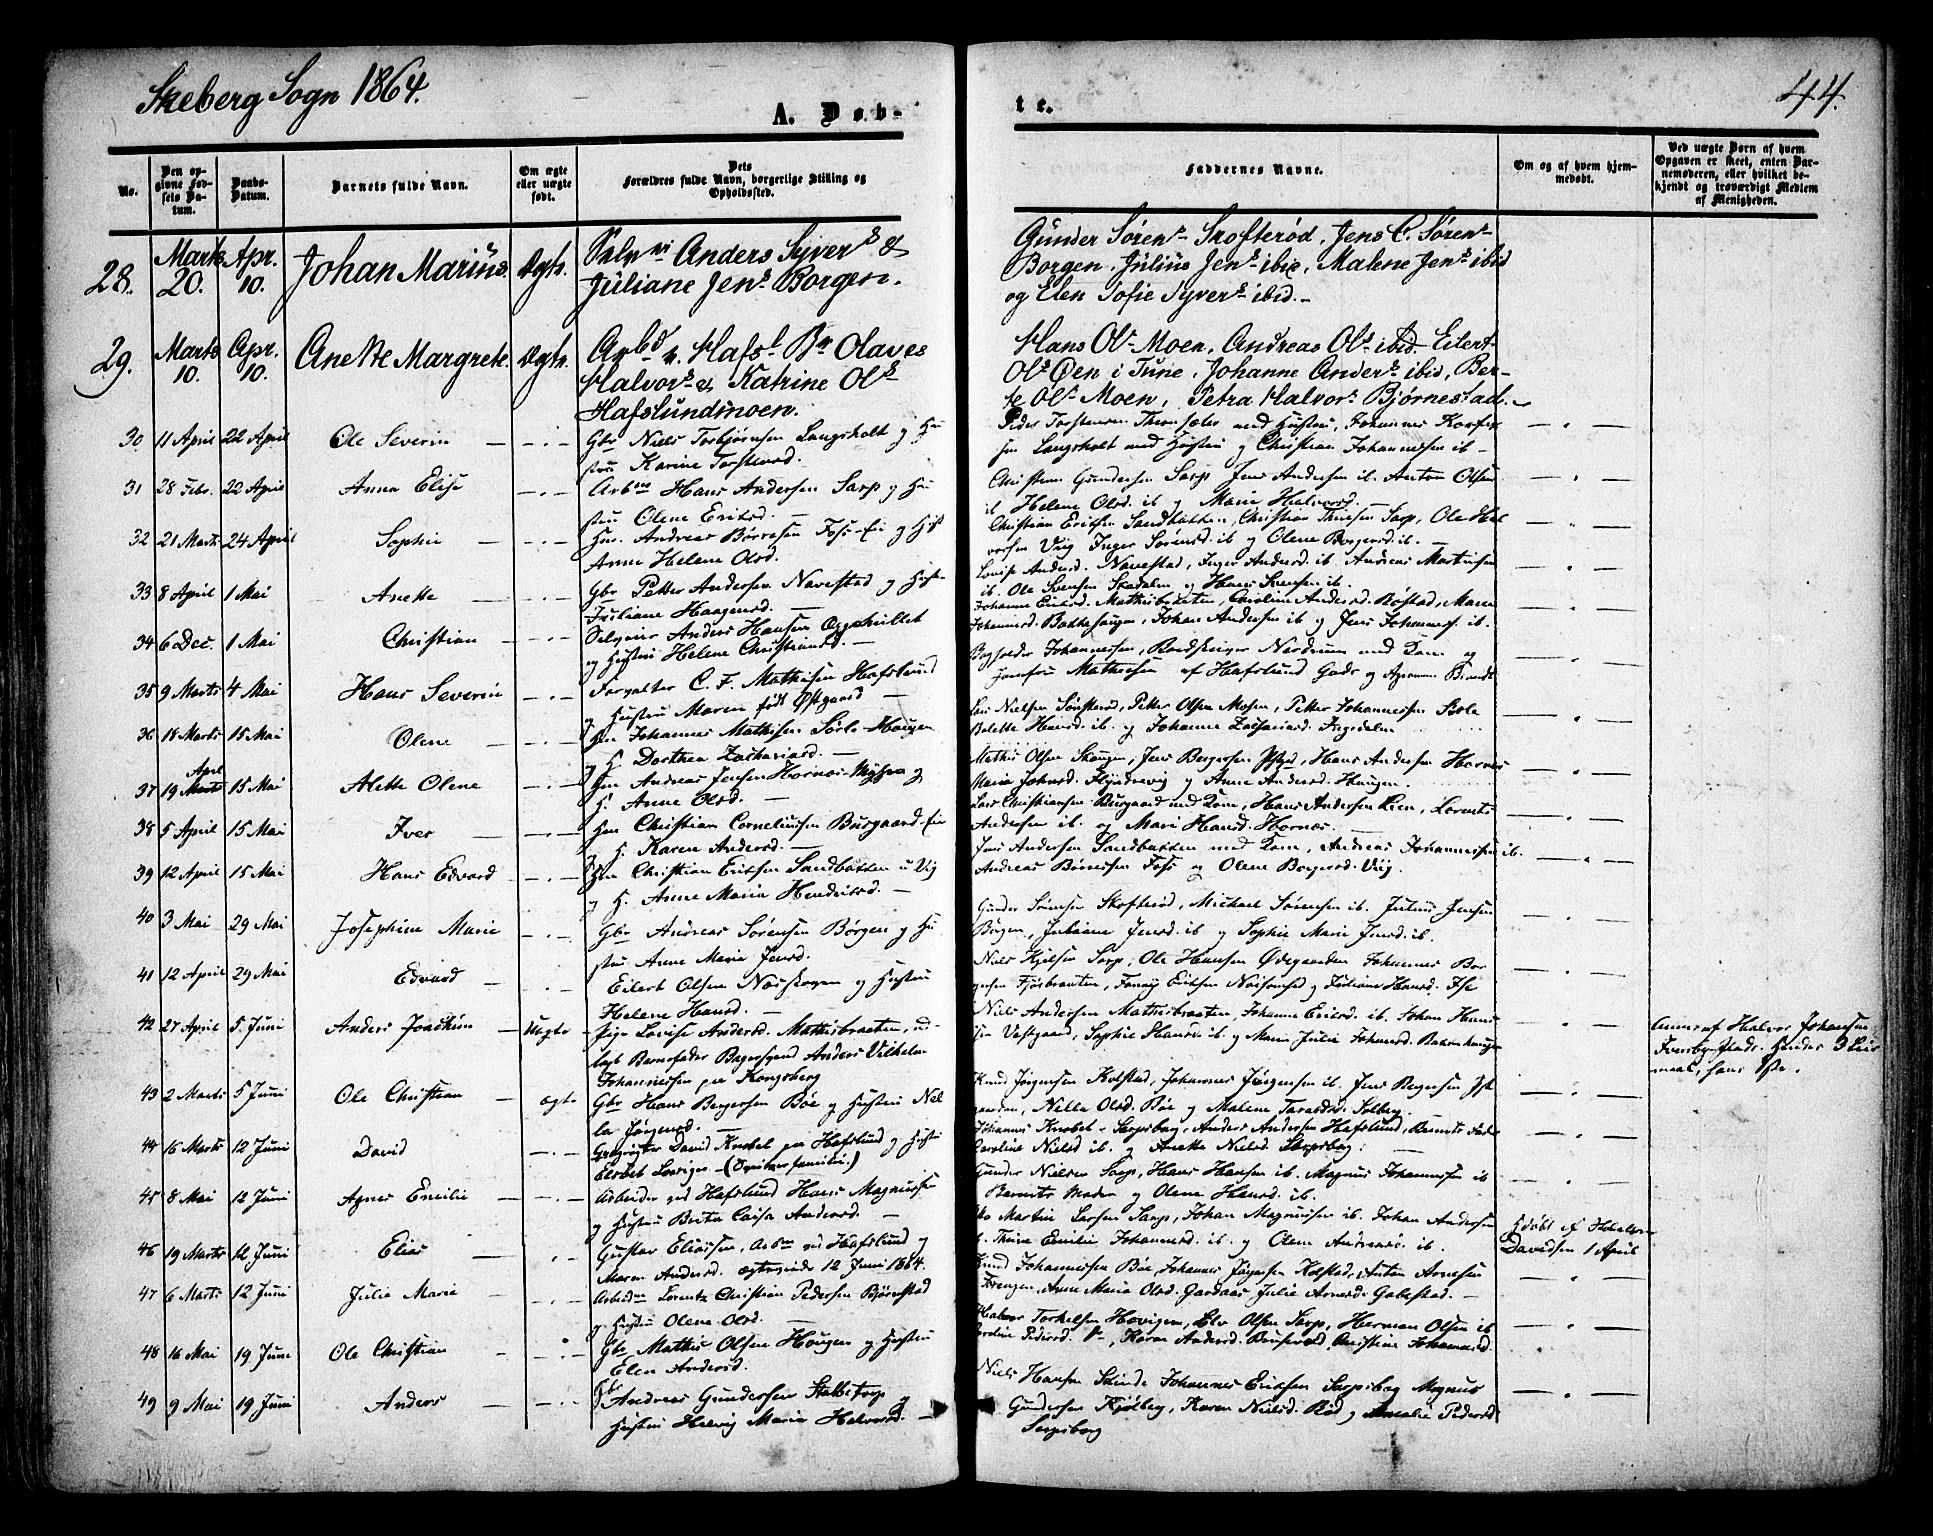 Skeberg Sogn 1864.
44.
A. Døb-
te.
No.
Den opgivne Fødsels Datum.
Daabs-Datum.
Barnets fulde Navn.
Om ægte eller uægte født.
Dets Forældres fulde Navn, borgerlige Stilling og Opholdssted.
Faddernes Navne.
Om og af hvem hjemmedøbt.
Ved uægte Børn af hvem Opgaven er skeet, enten Barnemoderen, eller hvilket bekjendt og troværdigt Medlem af Menigheden.
28. Marts 20. Apr. 10. Johan Marius. Ægte. Anders Syvers &
Juliane Jens Borgen.
Gunder Sørens Skofterød. Jens C. Sørens
Borgen. Julius Jens ibid, Malene Jens ibid
og Elen Sofie Syvers ibid.
29. Marts 10. Apr. 10. Anette Margrete. Ægte. Arbd v. Hafsl. Olaves
Halvors & Katrine Ols
Hafslundmoen.
Hans Ols Moen, Andreas Ols ibid. Eilert
Ols Øen i Tune, Johanne Anders ibid, Ber-
te Ols Moen, Petra Halvors Bjørnestad.
30 11 April 22 April Ole Severin Gbr Niels Torbjørnsen Langsholt og Hu
stru Karine Torstensd.
Peder Torstensen med Hustru, Johannes
Langsholt med Hustru og Christian Johannesen ib
31 28 Febr. 22 April Anna Elise Arbm Hans Andersen Sarp og Hu
stru Olene Eriksd.
Christian Gundersen Sarp Jens Andersen ib. Anton Olsen
ib Helene Olsd. ib og Maria Halvorsd.
32 21 Marts 24 April Sophie Hm. Andreas Børresen Foss-Eie og Hust
Anne Helene Olsd.
Christian Eriksen Sandbakken, Christian Sarp, Ole Hal
vorsen Viig Inger Sørensd. ib og Olene Borgersd. ib.
33 8 April 1 Mai Anette Gbr Petter Andersen Navestad og Hust
Juliane Haagensd.
Lovise Andersd. Navestad, Inger Andersd. ib Andreas Martinsen
ib. Ole Svensen Skadalen og Hans Svensen ib.
34 6 Dec. 1 Mai Christian Selveier Anders Hansen Opsahullet
og Hustru Helene Christiansd.
Johanne Eriksd. Mathisbraaten, Caroline Andersd. Bøstad, Maren
Johannesd. Bakkehaugen, Johan Andersen ib og Jens Johannesen ib.
35 9 Marts 4 Mai Hans Severin Forvalter C. F. Mathisen Hafslund
og Hustru Maren født Østgaard
Bogholder Johannesen, Nordrum med Kone og
Jomfru Mathiesen af Hafslund Gods og Agronom Brandt
36 18 Marts 15 Mai Olene Hm Johannes Mathisen Sørli-Haugen
og H. Dorthea Zachariasd.
Nielsen Sønsterød, Petter Olsen Mosen, Petter Johannesen Bøle
Bolette Hansd. ib. og Johanne Zachariasd. Ingedalen
37 19 April Marts 15 Mai Alette Olene Hm Andreas Jensen Hornes-Myhra og
H. Anne Olsd.
Mathis Olsen Haugen, Jens Borgersen, Hans Andersen Hornes
Maria Johnsd. Flydrevig og Anne Andersd. Haugen.
38 5 April 15 Mai Iver Hm Christian Corneliussen Buvgaard-Eie
H. Karen Andersd.
Lars Christiansen Buvgaard med Kone, Hans Andersen Lien, Lorents
Andersen ib. og Mari Hansd. Hornes.
39 12 April 15 Mai Hans Edvard Hm Christian Eriksen Sandbakken u Viig
og H. Anne Maria Hendriksd.
Jens Andersen Sandbakken med Kone, Andreas Johannesen ib.
Andreas Børresen Foss og Olene Borgersd. Viig.
40 3 Mai 29 Mai Josephine Marie Gbr Andreas Sørensen Borgen og Hu
stru Anne Maria Jensd.
Gunder Sørensen Skofterød, Michael Sørensen ib. Julius Jensen
Borgen, Juliane Jensd. ib og Sophie Marie Jensd. ib.
41 12 April 29 Mai Edvard Eilert Olsen Næsskogen og Hustru
Helene Hansd.
Niels Kjølsen Sarp, Ole Hansen Ødegaarden Johannes Bor
gersen Fjøsbraaten, Eriksen og Juliane Hansd.
42 27 April 5 Juni Anders Joachim Uægte Pige Lovise Andersd. Mathisbraaten, ud-
lagt Barnefader Bagersvend Anders Vilhelm
Johannessen paa Kongsberg
Niels Andersen Mathisbraaten, Johanne Eriksd. ib. Johan Hans
sen Vestgaard, Sophie Hansd. ib og Maren Julie Johannesd. Bakkehaugen
Anm. af Halvor Johansen
43 2 Marts 5 Juni Ole Christian ægte Gbr Hans Borgersen Bøe og Hustru Nil-
la Jørgensd.
Knud Jørgensen Kolstad, Johannes Jørgensen ib. Jens Borgersen
Nilla Olsd. Bøe og Malene Taraldsd. Solberg.
44 16 Marts 12 Juni David David Knobel paa Hafslund og Hustru
Johannes Knobel Sarpsborg, Anders Andersen Hafslund, Barnets Fader
Caroline Nielsd ib. og Anette Nielsd. Sarpsborg.
45 8 Mai 12 Juni Agnes Emilie Arbeider ved Hafslund Hans Magnussen
og Hustru Brita Caisa Andersd.
Gunder Nielsen Sarp, Hans Hansen ib. Magnus Johannesen ib
Barnets Moder og Olene Hansd. ib.
46 19 Marts 12 Juni Elias Gustav Eliassen, Arbm ved Hafslund og
Maren Andersd. ægteviede 12 Juni 1864.
Martin Larsen Sarp, Johan Magnussen ib. Johan Andersen
ib. Thrine Emilie Johannesd. ib. og Olene Andreasd. ib.
Hdøbt af
Davidsen 1 April
47 6 Marts 12 Juni Julie Marie Arbeidm Lorentz Christian Pedersen Bjørnstad
og Hustru Olene Olsd.
Knud Johannesen Bøe, Johannes Jørgensen Kolstad, Anton Arnesen
Anne Maria Olsd. Julie Arnesd. Gabestad.
48 16 Mai 19 Juni Ole Christian Gbr Mathis Olsen Haugen og Hustru
Elen Andersd.
Halvor Torkelsen Hovigen, Olsen Sarp, Herman Olsen ib
Caroline Pedersd. Karen Andersd. Christine Johannesd.
49 9 Mai 19 Juni Anders Gbr Andreas Gundersen Stabtorp og
Hustru Helvig Maria Halvorsd.
Niels Hansen Johannes Eriksen Sarpsborg Magnus
Gundersen Kjølberg, Karen Nielsd. Rød og Amalie Pedersd
Sarpsborg